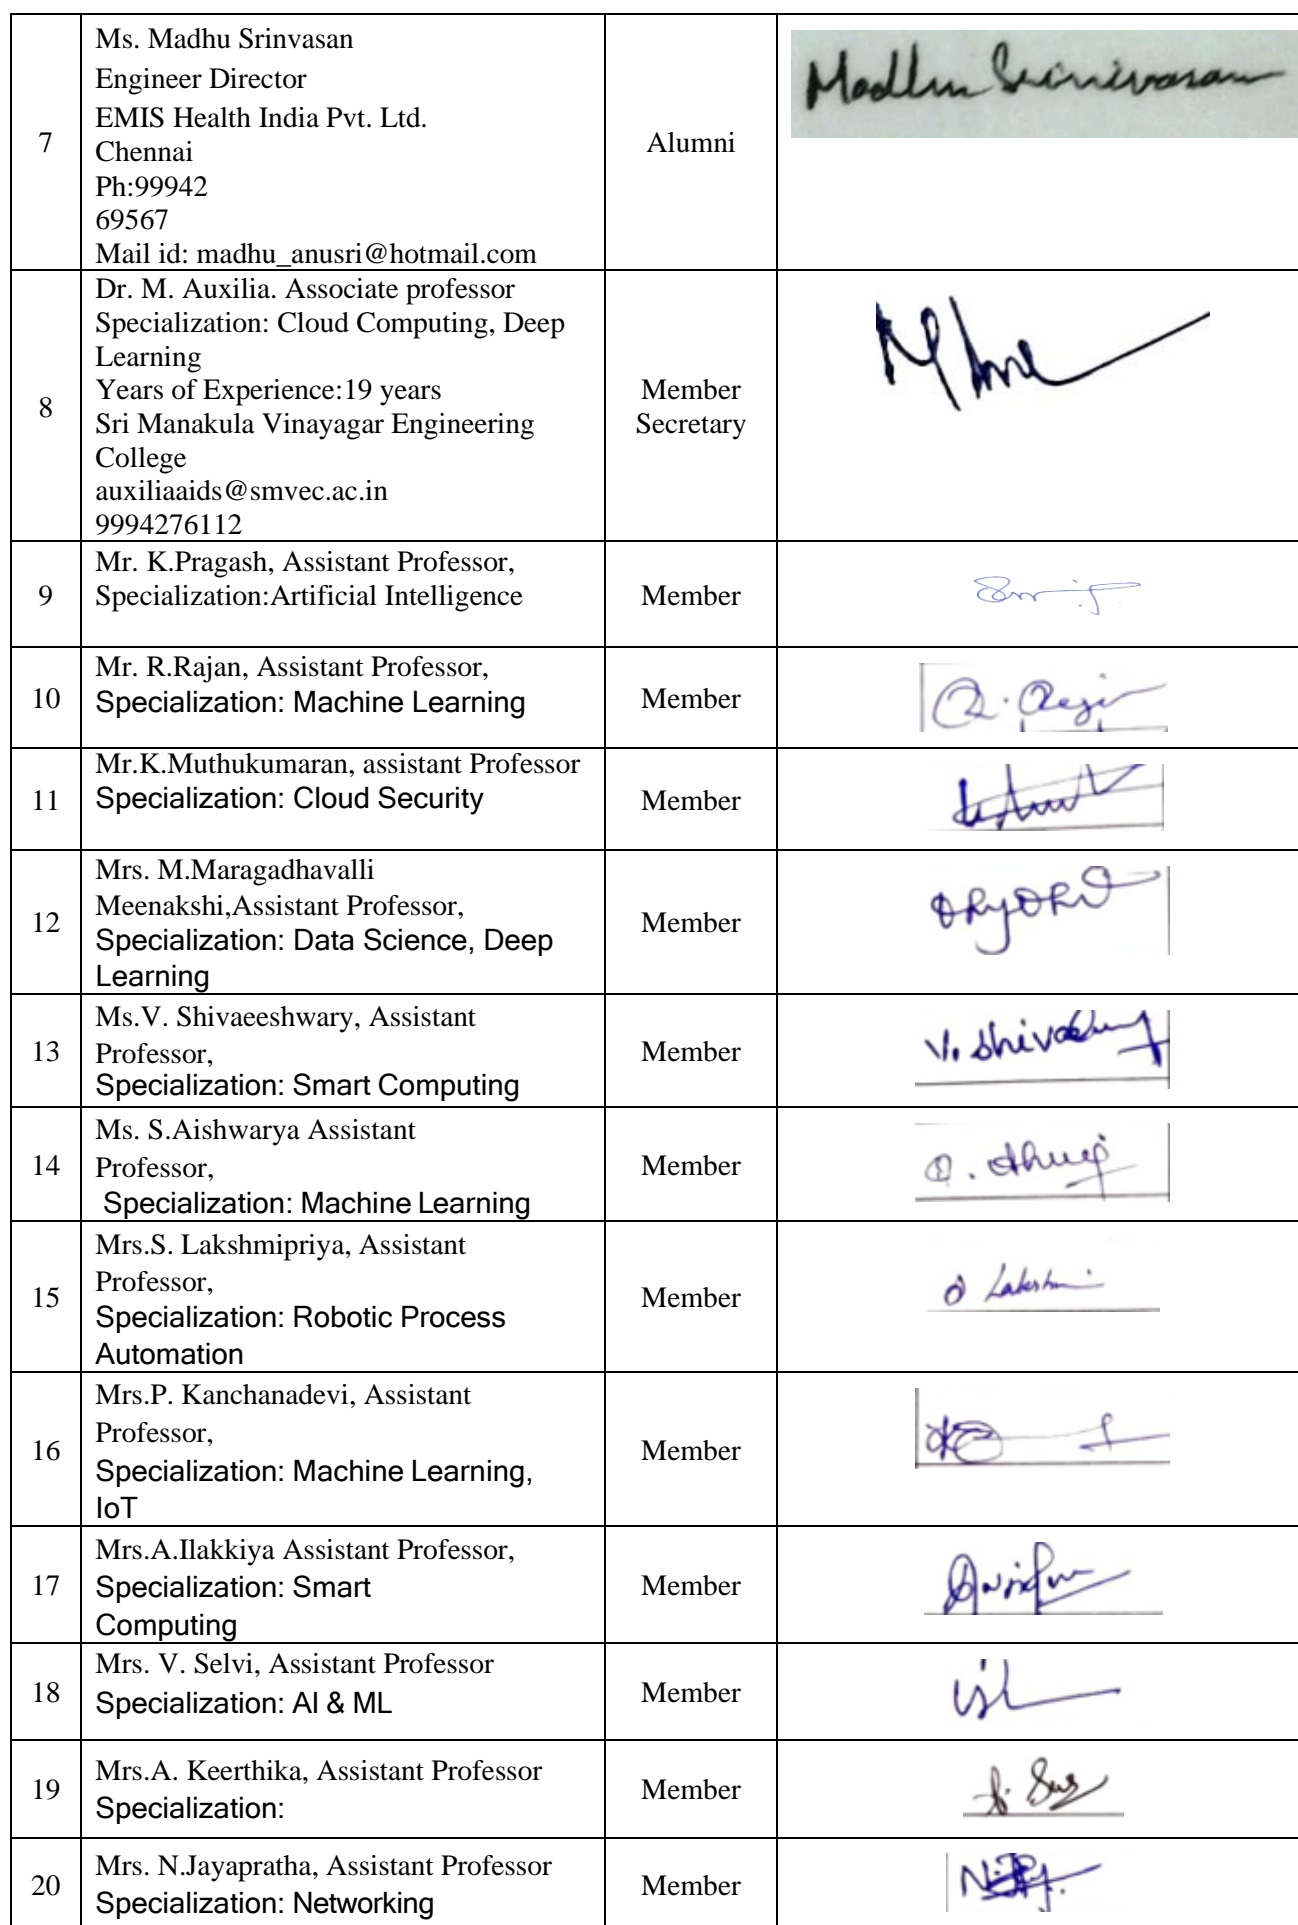 7
Ms. Madhu Srinvasan
Engineer Director
EMIS Health India Pvt. Ltd.
Chennai
Ph:99942
69567
Mail id: madhu_anusri@hotmail.com
Alumni
Madhu Srinivasan
8
Dr. M. Auxilia. Associate professor
Specialization: Cloud Computing, Deep
Learning
Years of Experience:19 years
Sri Manakula Vinayagar Engineering
College
auxiliaaids@smvec.ac.in
9994276112
Member
Secretary
9
Mr. K.Pragash, Assistant Professor,
Specialization:Artificial Intelligence
Member
10
Mr. R.Rajan, Assistant Professor,
Specialization: Machine Learning
Member
11
Mr.K.Muthukumaran, assistant Professor
Specialization: Cloud Security
Member
12
Mrs. M.Maragadhavalli
Meenakshi,Assistant Professor,
Specialization: Data Science, Deep
Learning
Member
13
Ms.V. Shivaeeshwary, Assistant
Professor,
Specialization: Smart Computing
Member
14
Ms. S.Aishwarya Assistant
Professor,
Specialization: Machine Learning
Member
15
Mrs.S. Lakshmipriya, Assistant
Professor,
Specialization: Robotic Process
Automation
Member
16
Mrs.P. Kanchanadevi, Assistant
Professor,
Specialization: Machine Learning,
IoT
Member
17
Mrs.A.Ilakkiya Assistant Professor,
Specialization: Smart
Computing
Member
18
Mrs. V. Selvi, Assistant Professor
Specialization: AI & ML
Member
19
Mrs.A. Keerthika, Assistant Professor
Specialization:
Member
20
Mrs. N.Jayapratha, Assistant Professor
Specialization: Networking
Member